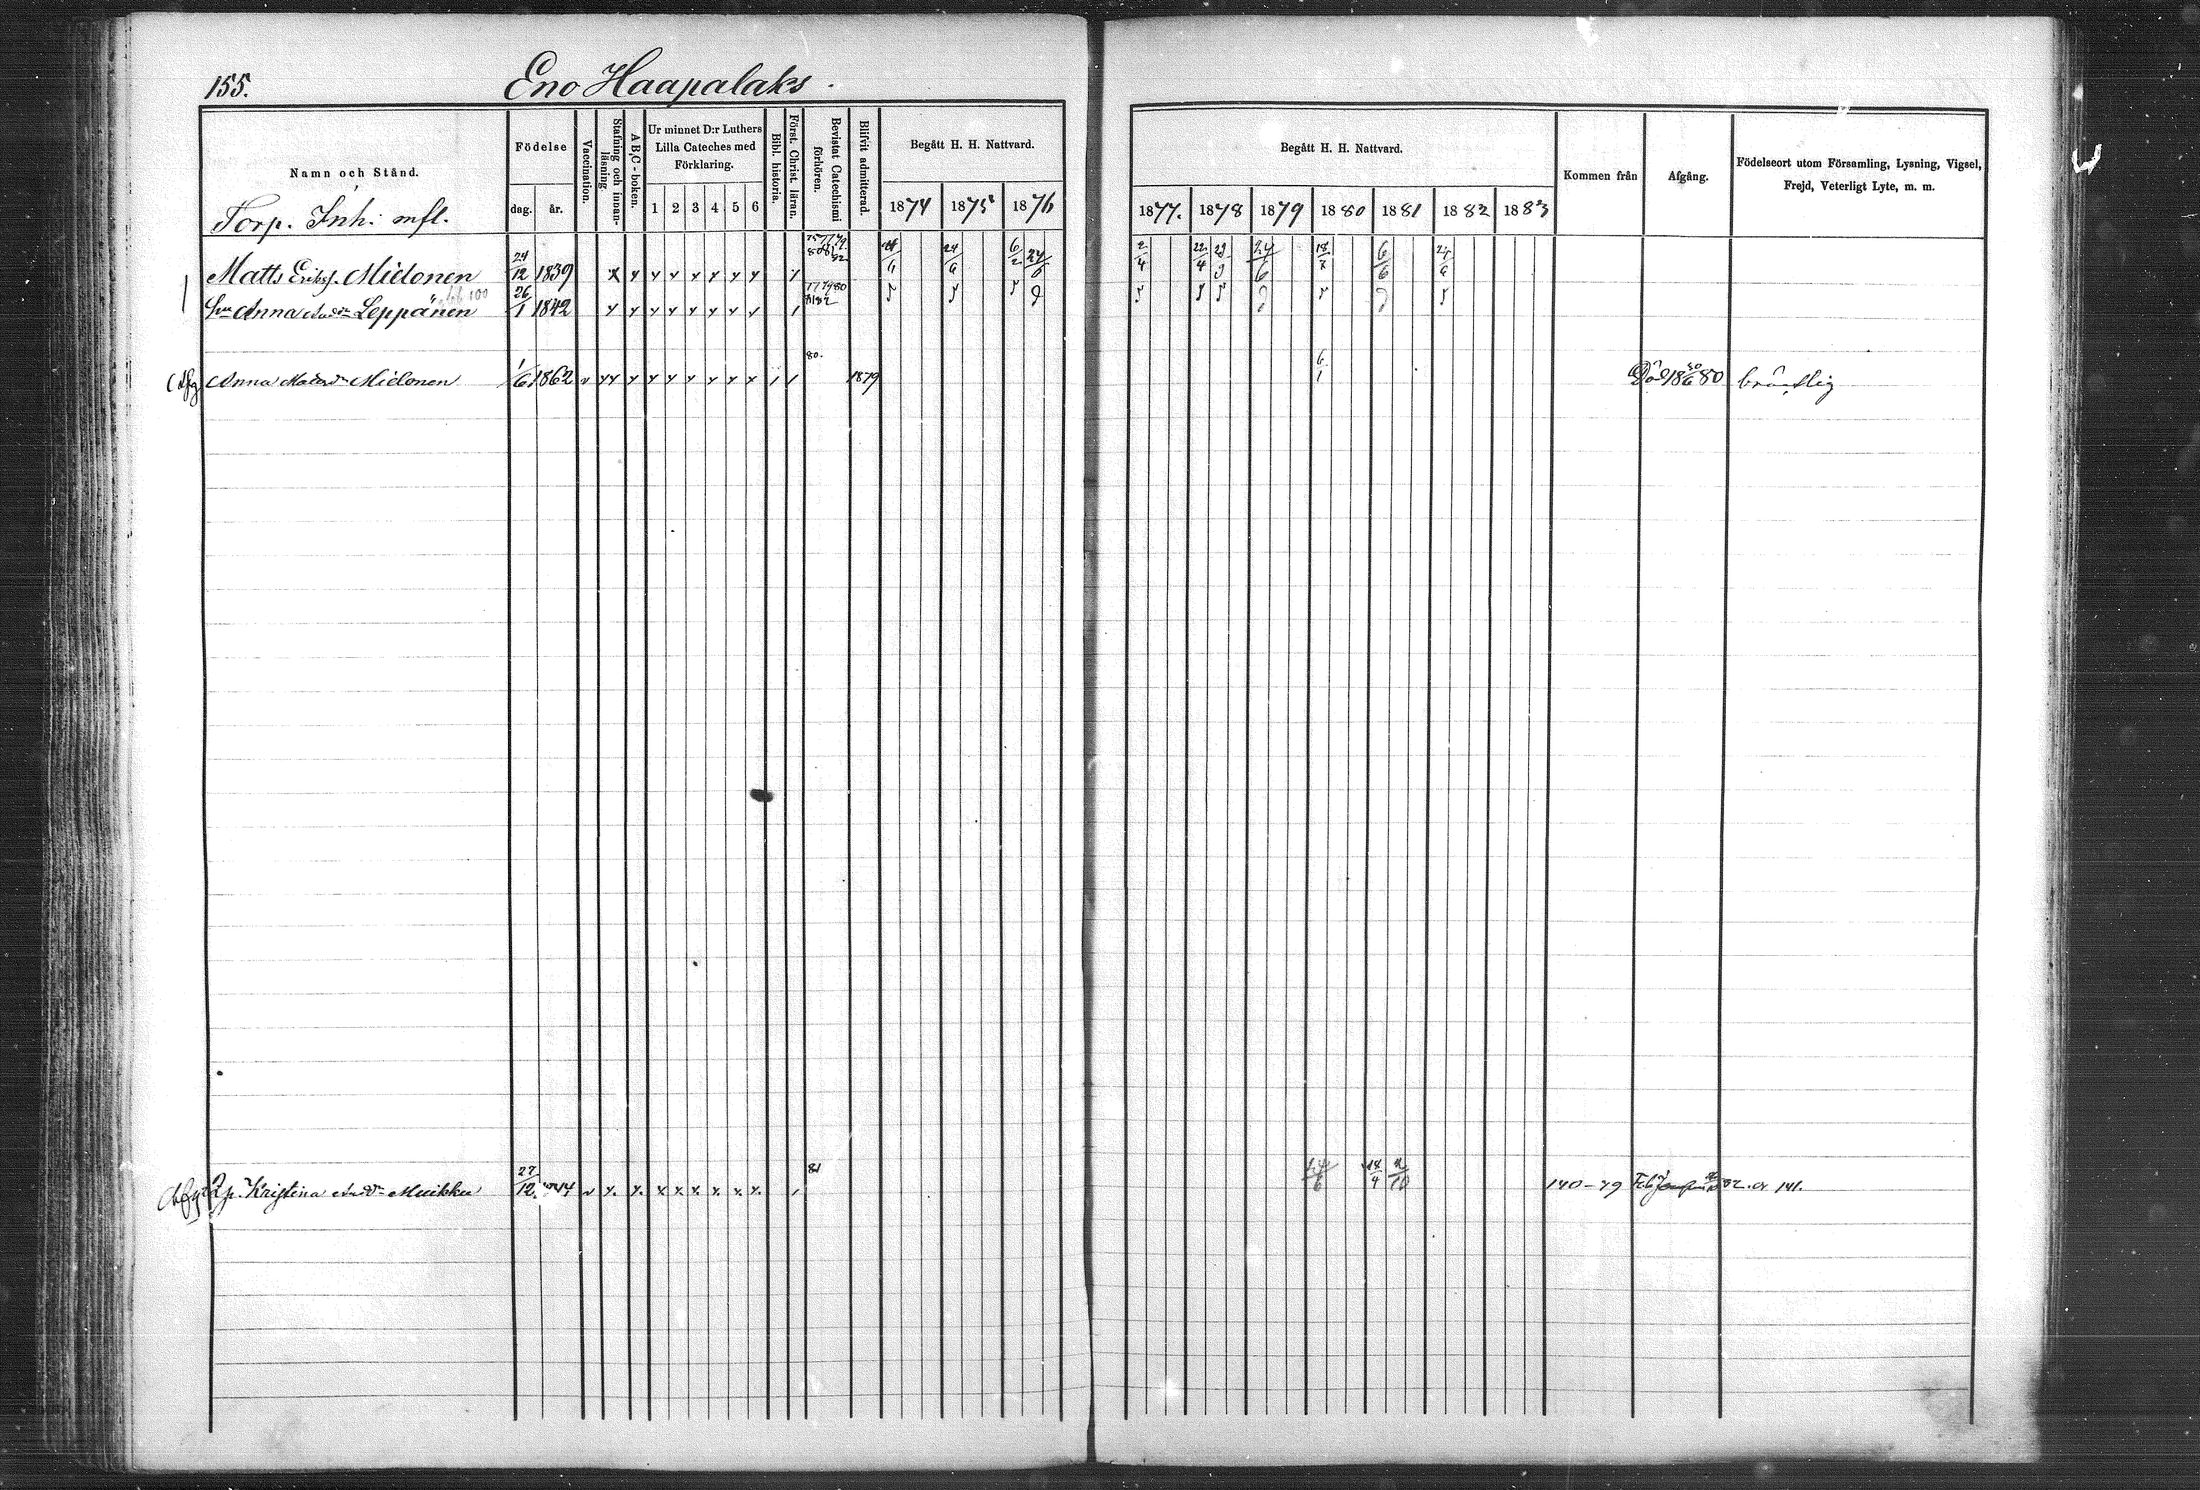 155. Eno Haapalaks.
Namn och Stånd.
Födelse
dag. år.
Vaccination.
Stafning och innan-läsning
ABC-boken.
Ur minnet D:r Luthers
Lilla Cateches med
Förklaring.
1 2 3 4 5 6
Bibl. historia.
Först. Christ. läran.
Bevistat Catechismi
förhören.
Blifvit admitterad.
Begått H. H. Nattvard.
1874 1875 1876
Begått H. H. Nattvard.
1877. 1878 1879 1880 1881 1882 1883
Kommen från
Afgång.
Födelseort utom Församling, Lysning, Vigsel,
Frejd, Veterligt Lyte, m. m.
Torp. Inh: mfl.
Matts Erikss. Mielonen 24/12 1839 24/6 24/6 6/2 24/6 2/4 22/4 29/9 24/6 18/7 6/6 24/6
hu Anna And:dr Leppänen 26/1 1842
Anna Matsdr Mielonen 1/6 1862 80. 1879 6/1 Död 18 80 bröstlig
Kristina And:dr Muikku 27/12 44 81 24/6 18/4 2/10 140-79 82. or 141.